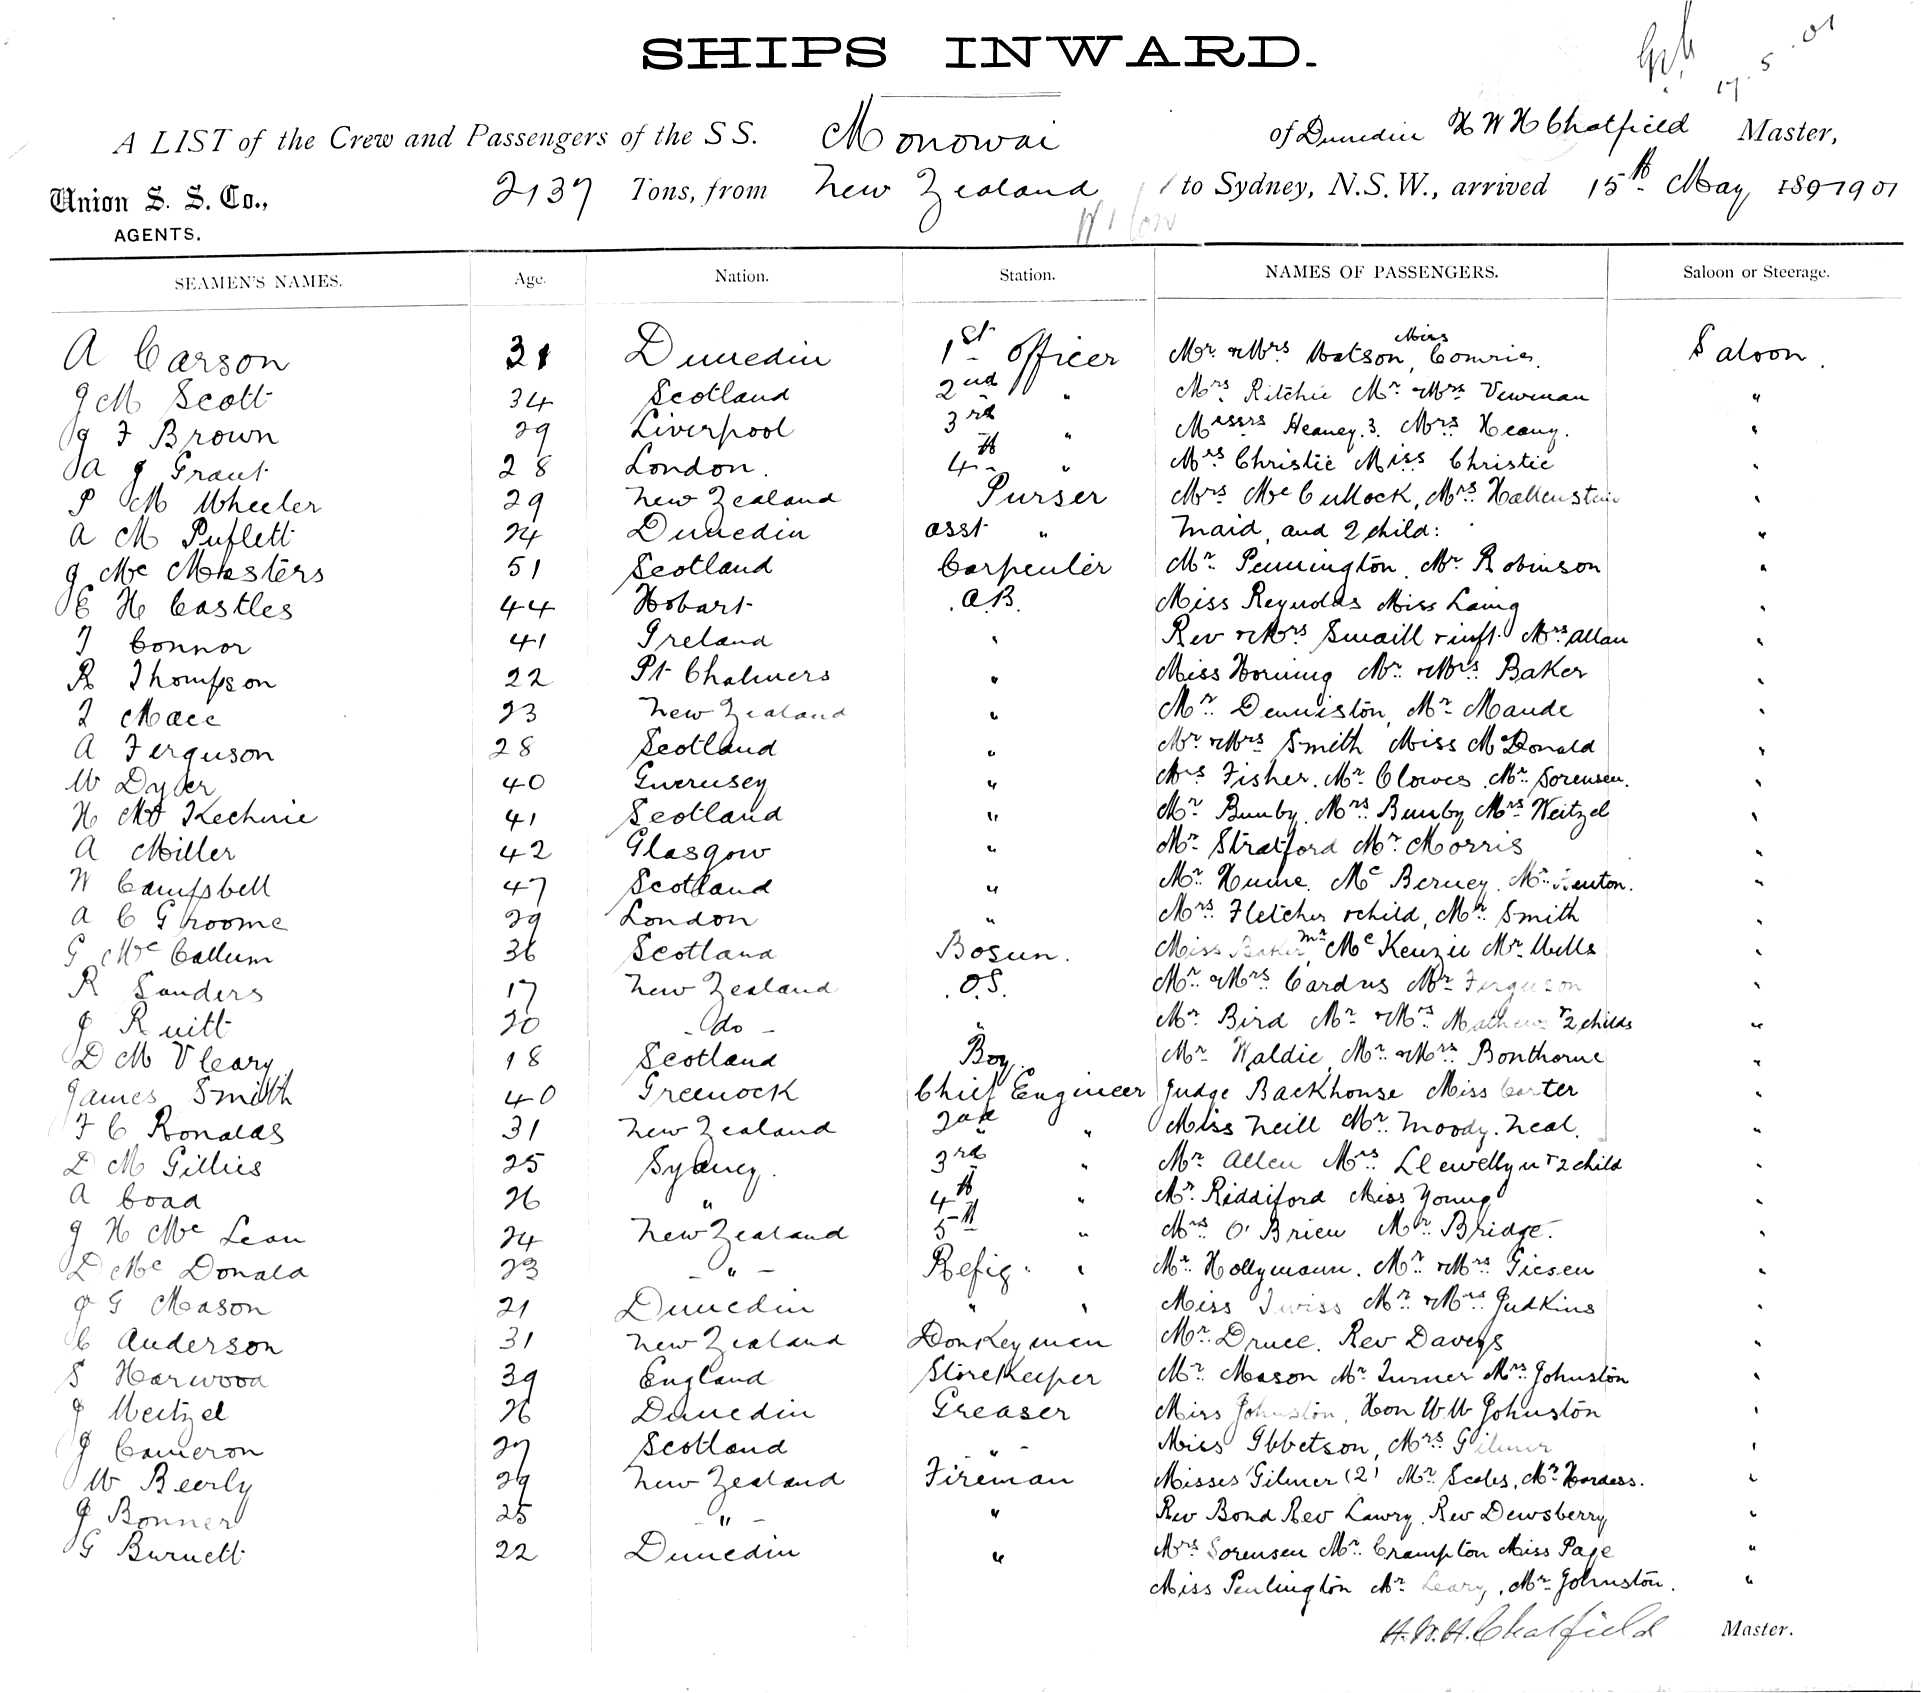 SHIPS INWARD.
17. 5. 01
A LIST of the Crew and Passengers of the S S. Monowai of Dunedin H W H Chatfield Master,
Union S. S. Co., 2137 Tons, from New Zealand to Sydney, N.S.W., arrived 15th May 1897901
AGENTS.
SEAMEN'S NAMES. Age. Nation. Station. NAMES OF PASSENGERS. Saloon or Steerage.
A Carson 31 Dunedin 1st Officer Mr & Mrs Watson, Miss Comrie. Saloon.
J M Scott 34 Scotland 2nd " Mrs Ritchie Mr & Mrs Newman "
J F Brown 29 Liverpool 3rd " Messrs Heaney. 3. Mrs Heany. "
A J Grant 28 London. 4th " Mrs Christie Miss Christie "
P M Wheeler 29 New Zealand Purser Mrs McCullock, Mrs Hallenstein "
A M Puflett 24 Dunedin asst " maid, and 2 child: "
J Mc Masters 51 Scotland Carpenter Mr Pennington, Mr Robinson "
C H Castles 44 Hobart A.B. Miss Reynolds Miss Laing "
T Connor 41 Ireland " Rev & Mrs Smaill & inft. Mrs Allan "
R Thompson 22 Pt Chalmers " Miss Horning Mr & Mrs Baker "
T Mace 23 New Zealand " Mr Denniston, Mr Maude "
A Ferguson 28 Scotland " Mr & Mrs Smith Miss McDonald "
W Dyker 40 Guernsey " Mrs Fisher. Mr Clowes. Mr Sorensen. "
H Mc Kechnie 41 Scotland " Mr Bumby. Mrs Bumby Mrs Weitzel "
A Miller 42 Glasgow " Mr Stratford Mr Morris "
W Campbell 47 Scotland " Mr Hume. Mc Berney. Mr "
A C Groome 29 London " Mrs Fletcher & child, Mr Smith "
G Mc Callum 36 Scotland Bosun. Miss Baker, Mr McKenzie Mr Wells "
R Sanders 17 New Zealand O.S. Mr & Mrs Cardus Mr Ferguson "
J Ruitt 20 - do - " Mr Bird Mr & Mrs Mathews & 2 childs "
D M Vleary 18 Scotland Boy. Mr Waldie, Mr & Mrs Bonthorne "
James Smith 40 Greenock Chief Engineer Judge Backhouse Miss Carter "
F C Ronalds 31 New Zealand 2nd " Miss Neill Mr Moody. Neal. "
D M Gillies 25 Sydney. 3rd " Mr Allen Mrs Llewellyn & 2 child "
A Coad 26 " 4th " Mr Riddiford Miss Young "
J H Mc Lean 24 New Zealand 5th " Mrs O'Brien Mr Bridge. "
D Mc Donald 23 - " - Refig. " Mr Hollymann. Mr & Mrs Giesen "
J G Mason 21 Dunedin " " Miss Twiss Mr & Mrs Judkins "
C Anderson 31 New Zealand Donkeyman Mr. Druce. Rev Daveys "
S Harwood 39 England Storekeeper Mr Mason Mr Turner Mrs Johnston "
J Weitzel 26 Dunedin Greaser Miss Johnston, Hon W W Johnston "
J Cameron 27 Scotland " - Miss Ibbetson, Mrs Gilmer "
W Beerly 29 New Zealand Fireman Misses Gilmer (2) Mr Scales, Mr Hordess. "
J Bonner 25 - " - " Rev Bond Rev Lawry. Rev Dewsberry "
G Burnett 22 Dunedin " Mrs Sorensen Mr Crampton Miss Page "
Miss Penlington Mr Leary, Mr Johnston. "
H. W. H. Chatfield Master.